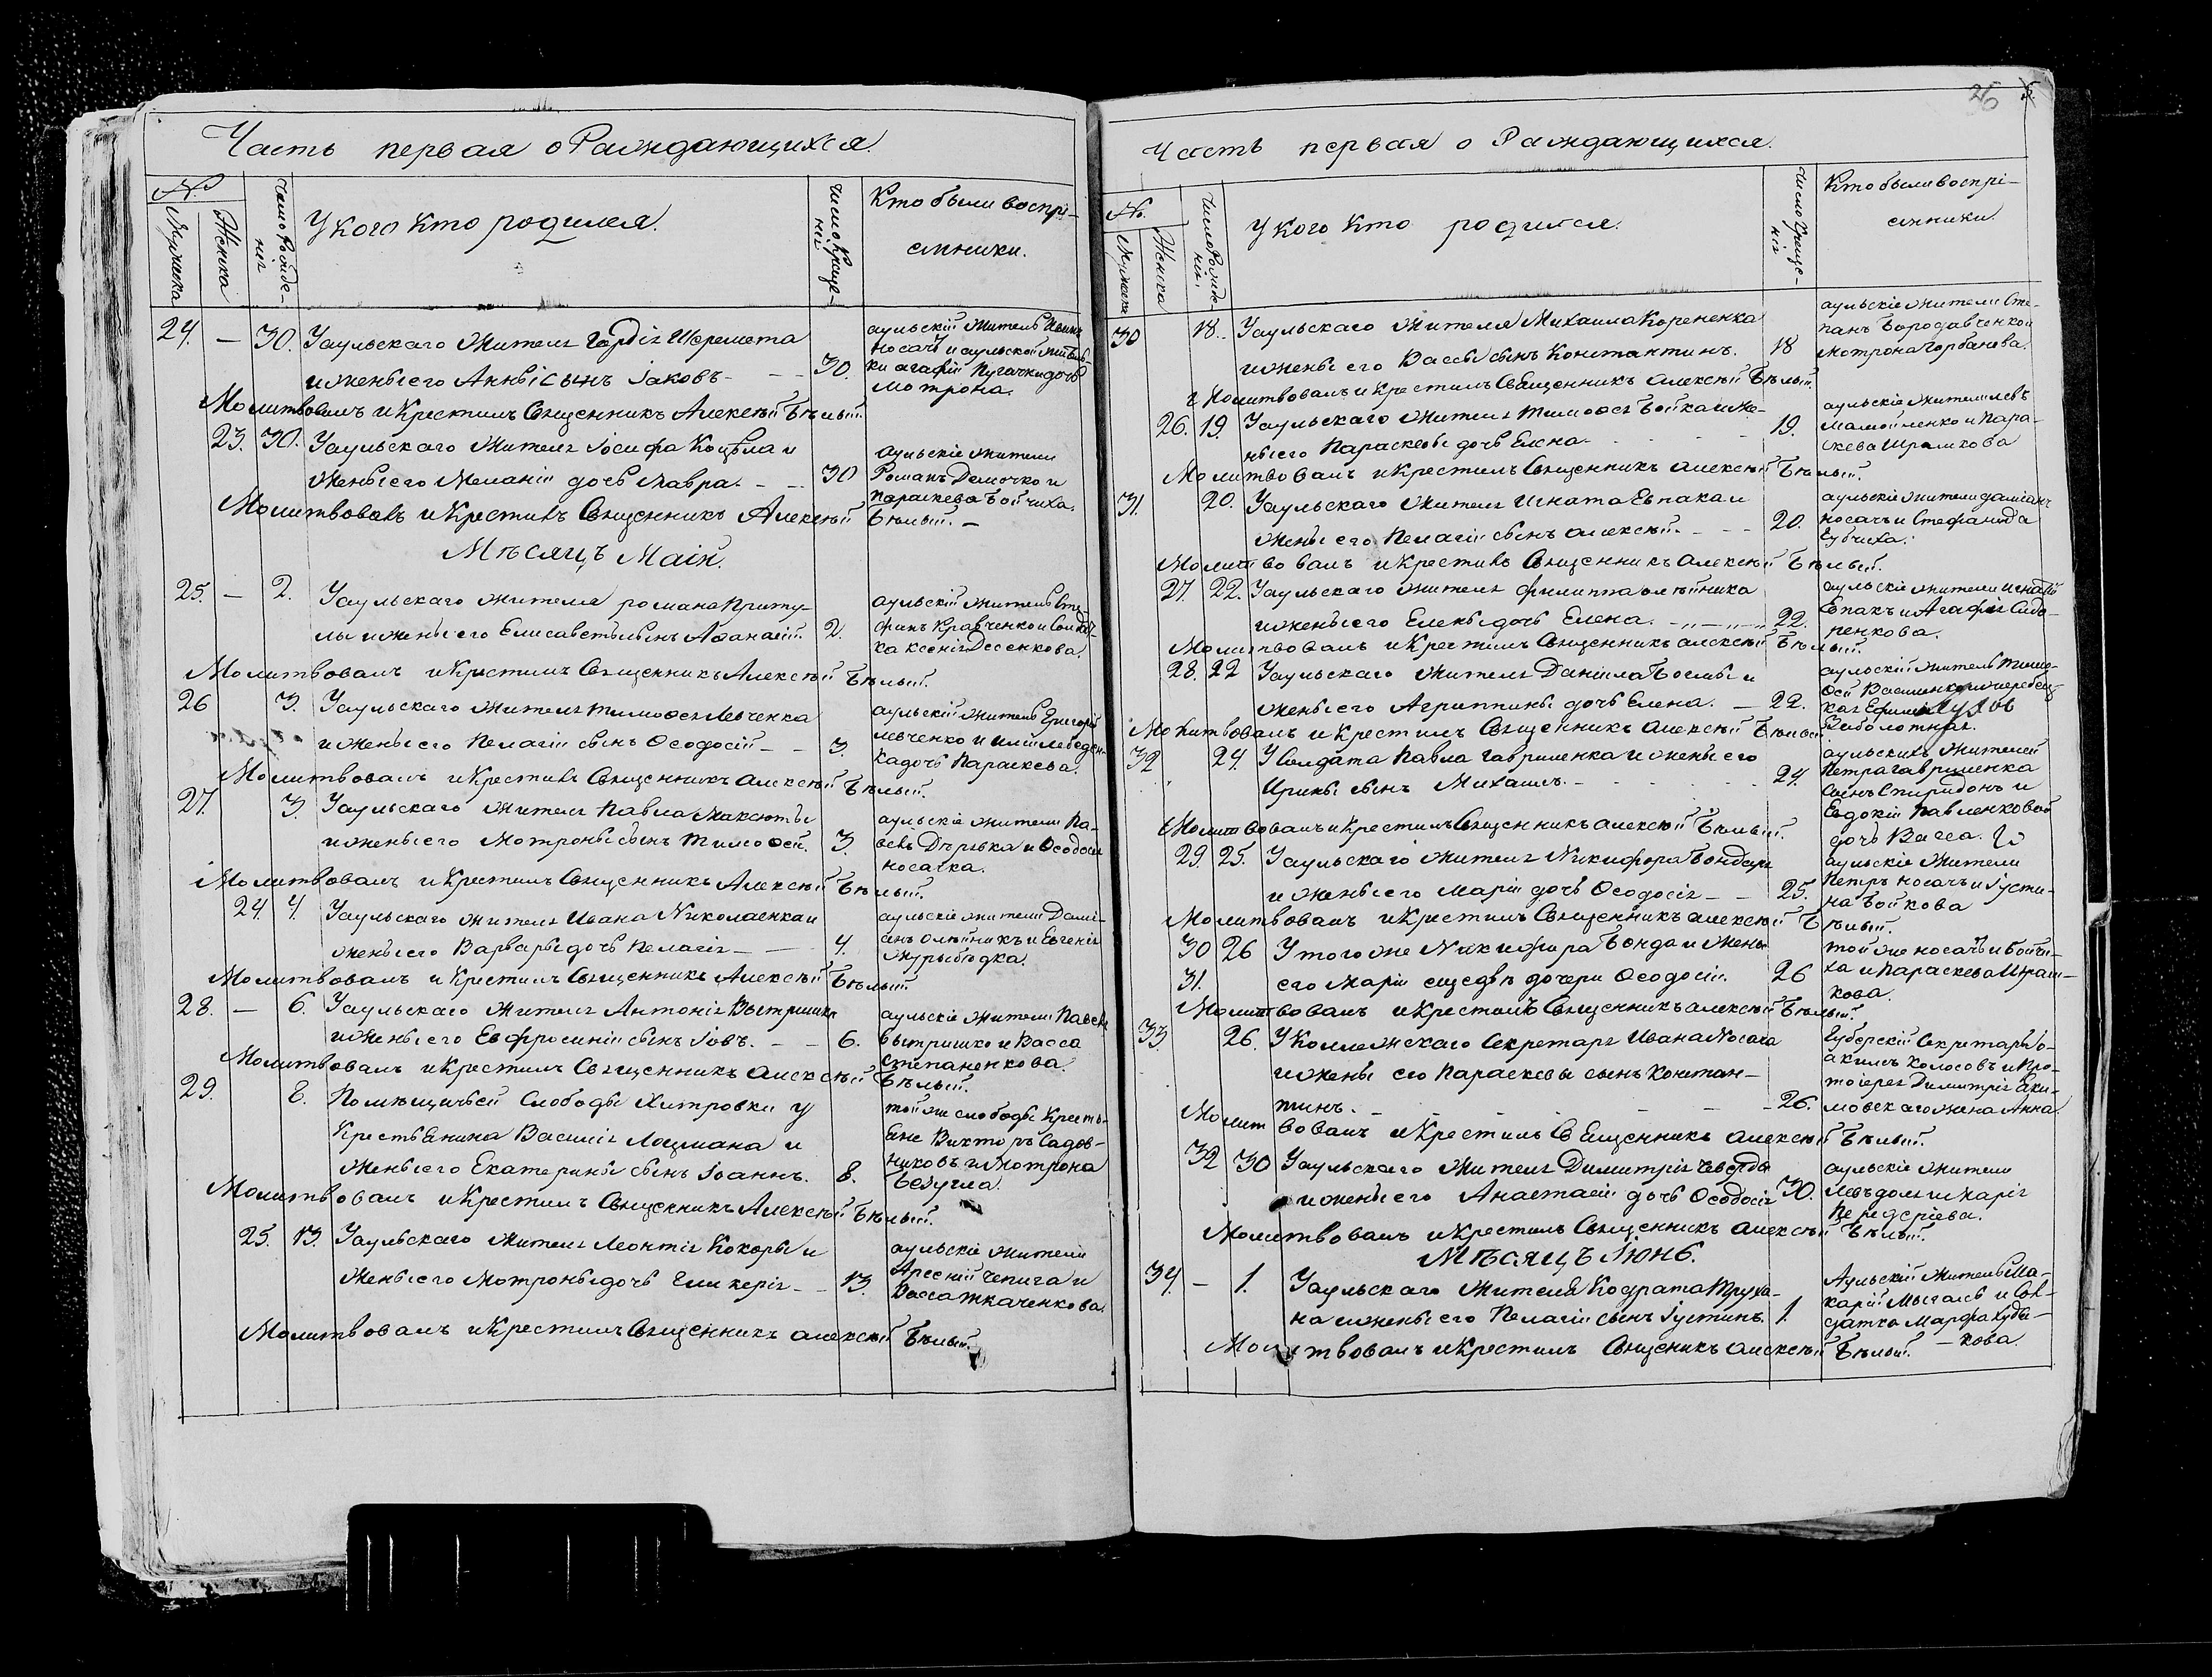 Часть первая о Раждающихся.
№.
Мужеска
Женска
Число Рожде-
нія
У кого кто родился.
Число Креще-
нія
Кто были воспрі-
емники.
24. — 30. У аульскаго жителя Гордія Шеремета
и жены его Анны сынъ Іаковъ - - - 30.
аульскій житель Иванъ
Носачъ и аульской житель-
ки Агафіи Пугачки дочь
Мотрона.
Молитвовалъ и Крестилъ Священникъ Алексѣй Бѣлый.
23. 30. У аульскаго жителя Іосифа Коцѣла и
жены его Меланіи дочь Мавра. - - - 30
аульскіе жители
Романъ Демочко и
Параскева Бойчиха.
Молитвовалъ и Крестилъ Священникъ Алексѣй Бѣлый. -
Мѣсяцъ Маій.
25. — 2. У аульскаго жителя романа Приту-
лы и жены его Елисаветы сынъ Аѳанасій. 2.
аульскій житель Сте-
фанъ Кравченко и Солдат-
ка Ксенія Десенкова.
Молитвовалъ и Крестилъ Священникъ Алексѣй Бѣлый.
26 3. У аульскаго жителя Тимоѳея Левченка
и жены его Пелагіи сынъ Ѳеодосій - - 3.
аульскій житель Григорій
Левченко и Иліи Лебеден-
ка дочь Параскева.
Молитвовалъ и Крестилъ Священникъ Алексѣй Бѣлый.
27. 3. У аульскаго жителя Павла Максюты
и жены его Мотроны сынъ Тимоѳей. 3.
аульскіе жители Па-
велъ Дѣревка и Ѳеодосія
Носачка.
Молитвовалъ и Крестилъ Священникъ Алексѣй Бѣлый.
24. 4. У аульскаго жителя Ивана Николаенка и
жены его Варвары дочь Пелагія - - - 4.
аульскіе жители Дамі-
анъ Олѣйникъ и Евгенія
Журыбедка.
Молитвовалъ и Крестилъ Священникъ Алексѣй Бѣлый.
28. — 6. У аульскаго жителя Антонія Вытришка
и жены его Евфросиніи сынъ Іовъ. - - 6.
аульскіе жители Павелъ
Вытришко и Васса
Степаненкова.
Молитвовалъ и Крестилъ Священникъ Алексѣй Бѣлый.
29. 8. Помѣщичьей Слободы Хитровки у
Крестьянина Василія Лоцмана и
жены его Екатерины сынъ Іоаннъ. 8.
той же слободы Кресть-
яне Викторъ Садов-
никовъ и Мотрона
Безугла.
Молитвовалъ и Крестилъ Священникъ Алексѣй Бѣлый.
25. 13. У аульскаго жителя Леонтія Кокоры и
жены его Мотроны дочь Гликерія - - 13.
аульскіе жители
Арсеній Чепига и
Васса Ткаченкова.
Молитвовалъ и Крестилъ Священникъ Алексѣй Бѣлый.
26
Часть первая о Раждающихся.
№.
Мужеска
Женска
Число Рожде-
нія.
У кого кто родился.
Число Креще-
нія
Кто были воспрі-
емники.
30 18. У аульскаго жителя Михаила Корененка
и жены его Вассы сынъ Константинъ. 18
аульскіе жители Сте-
панъ Бородавченко и
Мотрона Горбанева.
Молитвовалъ и Крестилъ Священникъ Алексѣй Бѣлый.
26. 19. У аульскаго жителя Тимоѳея Бойка и же-
ны его Параскевы дочь Елена. - - - 19.
аульскіе жители Левъ
Мамойленко и Пара-
скева Шрамкова
Молитвовалъ и Крестилъ Священникъ Алексѣй Бѣлый.
31. 20. У аульскаго жителя Игната Евпака и
жены его Пелагіи сынъ Алексѣй. - - - 20.
аульскіе жители Даміанъ
Носачъ и Стефанида
Губчиха.
Молитвовалъ и Крестилъ Священникъ Алексѣй Бѣлый.
27. 22. У аульскаго жителя Филиппа Олѣйника
и жены его Елены дочь Елена. - - - 22.
аульскіе жители Игнатій
Евпакъ и Агафія Сидо-
ренкова.
Молитвовалъ и Крестилъ Священникъ Алексѣй Бѣлый.
28. 22 У аульскаго жителя Даніила Босаго и
жены его Агриппины дочь Елена. - 22.
аульскій житель Тимо-
ѳей Василенко и
Заболотная.
Молитвовалъ и Крестилъ Священникъ Алексѣй Бѣлый.
32 24. У Солдата Павла Гавриленка и жены его
Ирины сынъ Михаилъ. - - - 24.
аульскихъ жителей
Петра Гавриленка
сынъ Спиридонъ и
Евдокіи Павленковой
дочь Васса.
Молитвовалъ и Крестилъ Священникъ Алексѣй Бѣлый.
29. 25. У аульскаго жителя Никифора Бондаря
и жены его Маріи дочь Ѳеодосія - - 25.
аульскіе жители
Петръ Носачъ и Іусти-
на Бойкова
Молитвовалъ и Крестилъ Священникъ Алексѣй Бѣлый.
30 26 У того же Никифора Бонда и жены
31. его Маріи еще двѣ дочери Ѳеодосіи. 26
той же Носачъ и Бойчи-
ха и Параскева Шрам-
кова.
Молитвовалъ и Крестилъ Священникъ Алексѣй Бѣлый.
33 26. У Коллежскаго Секретаря Ивана Носача
и жены его Параскевы сынъ Констан-
тинъ. - - - 26.
Губерскій Секретарь Іо-
акимъ Колосовъ и Про-
тоіерея Димитрія Яки-
мовскаго жена Анна.
Молитвовалъ и Крестилъ Священникъ Алексѣй Бѣлый.
32 30 У аульскаго жителя Димитрія Чверда
и жены его Анастасіи дочь Ѳеодосія 30.
аульскіе жители
Марія
Передеріева.
Молитвовалъ и Крестилъ Священникъ Алексѣй Бѣлый.
Мѣсяцъ Іюнь.
34. — 1. У аульскаго жителя Кодрата Труха-
на и жены его Пелагіи сынъ Іустинъ. 1.
Аульскій житель Ма-
карій Мыгалъ и Сол-
датка Марфа Худя-
кова.
Молитвовалъ и Крестилъ Священникъ Алексѣй Бѣлый.